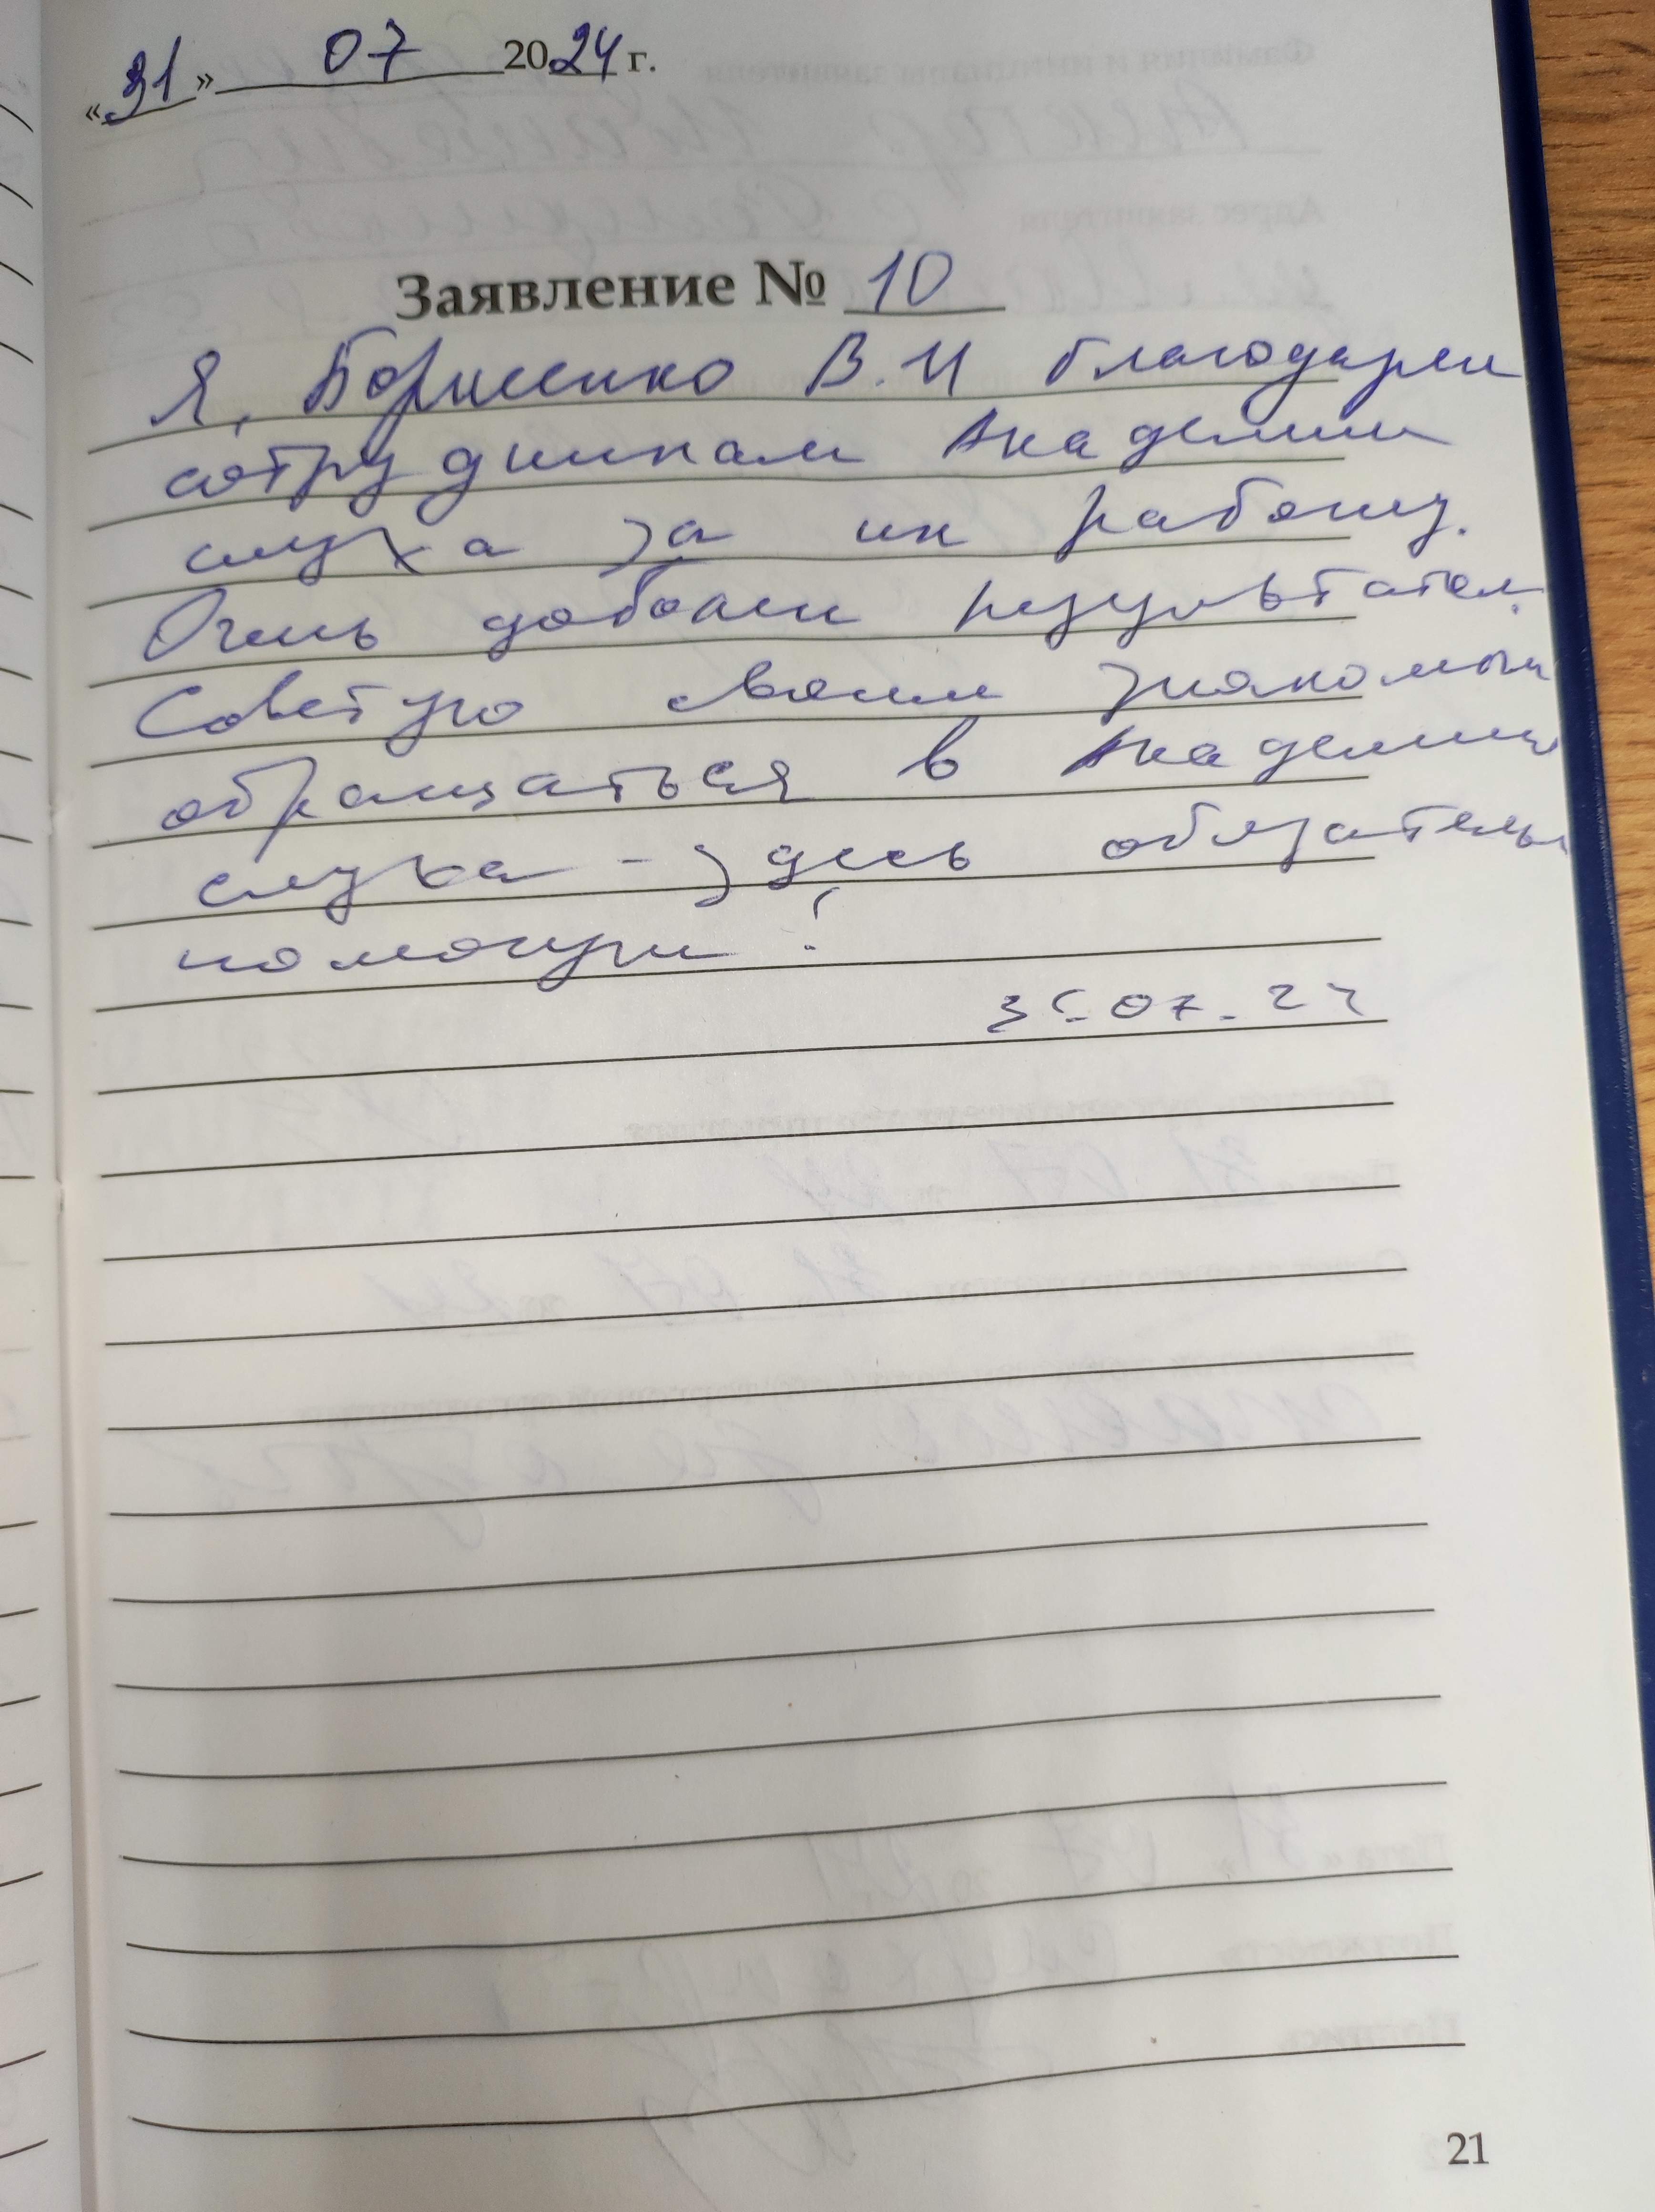 «31» 07 2024 г.
Заявление № 10
Я, Борисенко В.И благодарен
сотрудникам Академии
слуха за их работу.
Очень доволен результатом.
Советую своим знакомым
обращаться в Академию
слуха - здесь обязательно
помогут !
31.07.24
21